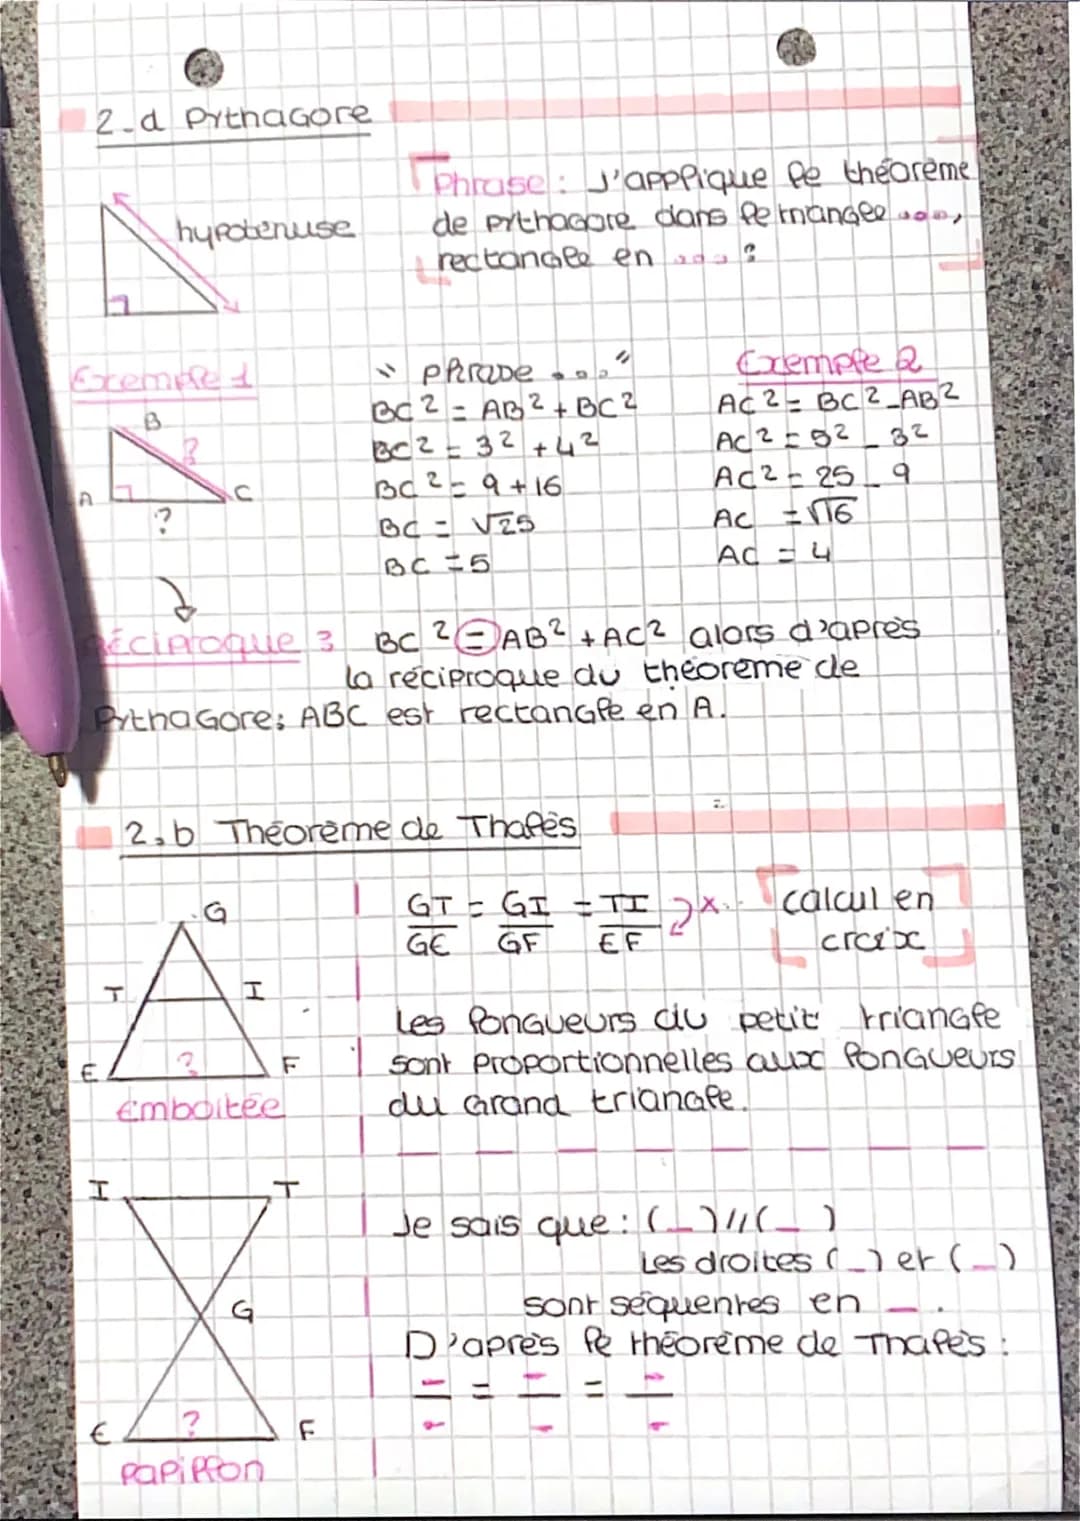 2-d Pythagore
Phrase : J'applique le théorème
de Pythagore dans le triangle ...,
rectangle en ... ?
hypoténuse
Exemple 1
B
?
A
C
?
" phrase ... "
BC² = AB² + BC²
BC² = 3² + 4²
BC² = 9 + 16
BC = √25
BC = 5
Exemple 2
AC² = BC² - AB²
AC² = 5² - 3²
AC² = 25 - 9
AC = √16
AC = 4
Réciproque : BC² = AB² + AC² alors d'après
la réciproque du théorème de
Pythagore; ABC est rectangle en A.
2.b Théorème de Thalès
G
T
I
E
?
F
Emboîtée
GT/GE = GI/GF = TI/EF x
calcul en
croix
Les longueurs du petit triangle
sont proportionnelles aux longueurs
du grand triangle.
I
T
G
E
?
F
Papillon
Je sais que : (_) // (_)
Les droites (_) et (_)
sont séquentes en _.
D'après le théorème de Thalès :
_/_ = _/_ = _/_